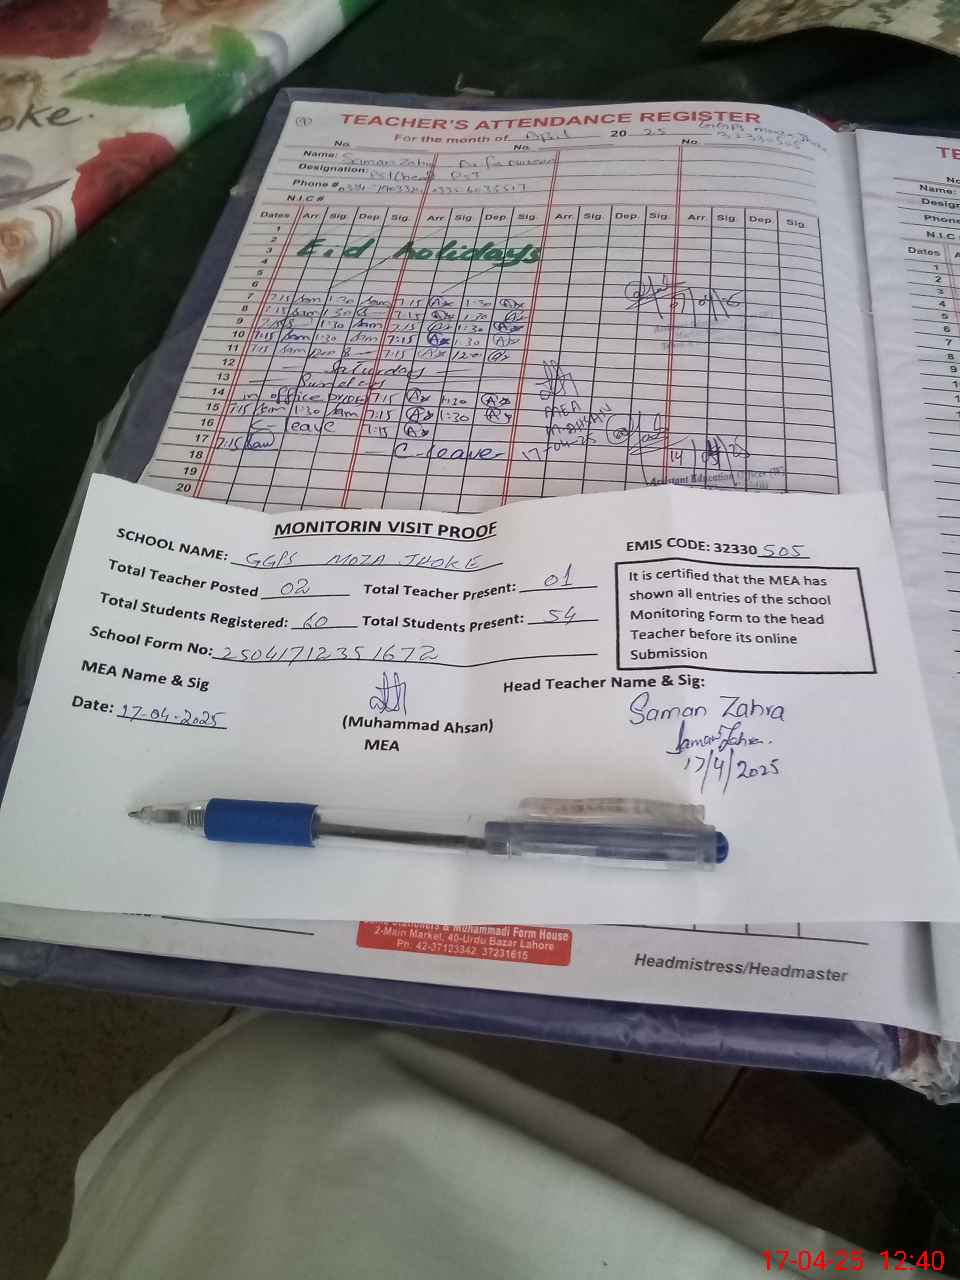 oke.
TEACHER'S ATTENDANCE REGISTER
For the month of April 2025
32330505
No. No. No.
Name: Saman Zahra
Designation: PST(head) PST
Phone #
N.I.C #
Dates Arr. Sig. Dep. Sig. Arr. Sig. Dep. Sig. Arr. Sig. Dep. Sig. Arr. Sig. Dep. Sig.
1
2
3 Eid holidays
4
5
6
7 7:15 Sam 1:30 Sam 7:15 1:30
8 7:15 Sam 1:30 7:15 1:30
9 7:15 1:30 Sam 7:15 1:30
10 7:15 Sam 1:30 Sam 7:15 1:30
11 7:15 Sam 7:15
12 Saturdays
13 Sundays
14 in office 7:15 1:30
15 7:15 Sam 1:30 Sam 7:15 1:30
16 C-leave 7:15
17 7:15 Sam C-leave
18
19
20
MEA
M.AHSAN
17-04-25
Assistant Education Officer
TE
No
Name:
Desig
Phone
N.I.C
Dates A
1
2
3
4
5
6
7
8
9
MONITORIN VISIT PROOF
SCHOOL NAME: GGPS MOZA JHOKE
EMIS CODE: 32330 505
Total Teacher Posted 02 Total Teacher Present: 01
Total Students Registered: 60 Total Students Present: 54
School Form No: 25041712351672
It is certified that the MEA has
shown all entries of the school
Monitoring Form to the head
Teacher before its online
Submission
MEA Name & Sig
Date: 17-04-2025
(Muhammad Ahsan)
MEA
Head Teacher Name & Sig:
Saman Zahra
Saman Zahra.
17/4/2025
& Muhammadi Form House
2-Main Market, 40-Urdu Bazar Lahore
Ph: 42-37123342, 37231615
Headmistress/Headmaster
17-04-25 12:40